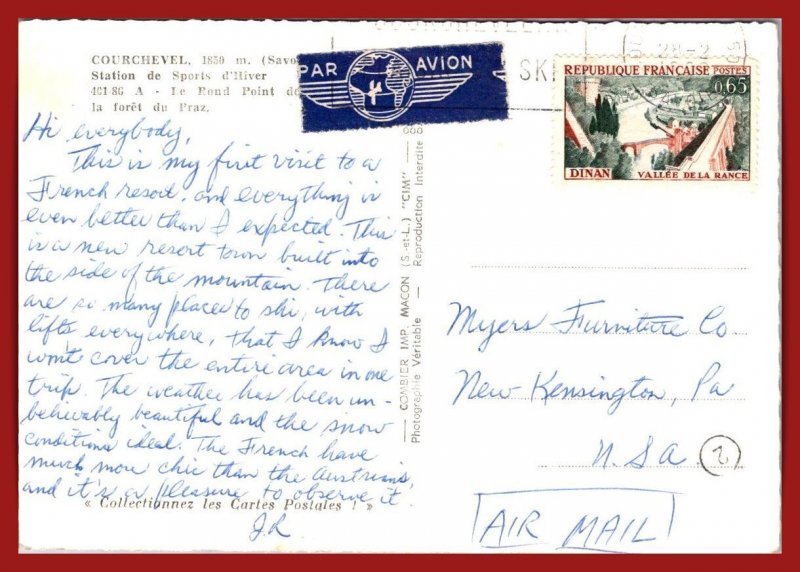 COURCHEVEL, 1850 m. (Savo
Station de Sports d'Hiver
461-86 A - Le Rond Point de
la forêt du Praz.
PAR AVION
SKI
28-2
RÉPUBLIQUE FRANÇAISE POSTES
0,65
DINAN VALLÉE DE LA RANCE
Hi everybody,
This is my first visit to a
French resort, and everything is
even better than I expected. This
is a new resort town built into
the side of the mountain. There
are so many places to ski, with
lifts everywhere, that I know I
won't cover the entire area in one
trip. The weather has been un-
believably beautiful and the snow
conditions ideal. The French have
much more chic than the Austrians,
and it's a pleasure to observe it.
J.R
« Collectionnez les Cartes Postales ! »
COMBIER IMP. MACON (S.-et-L.) "CIM"
Photographie Véritable - Reproduction Interdite
Myers Furniture Co.
New Kensington, Pa
U.S.A.
2
AIR MAIL